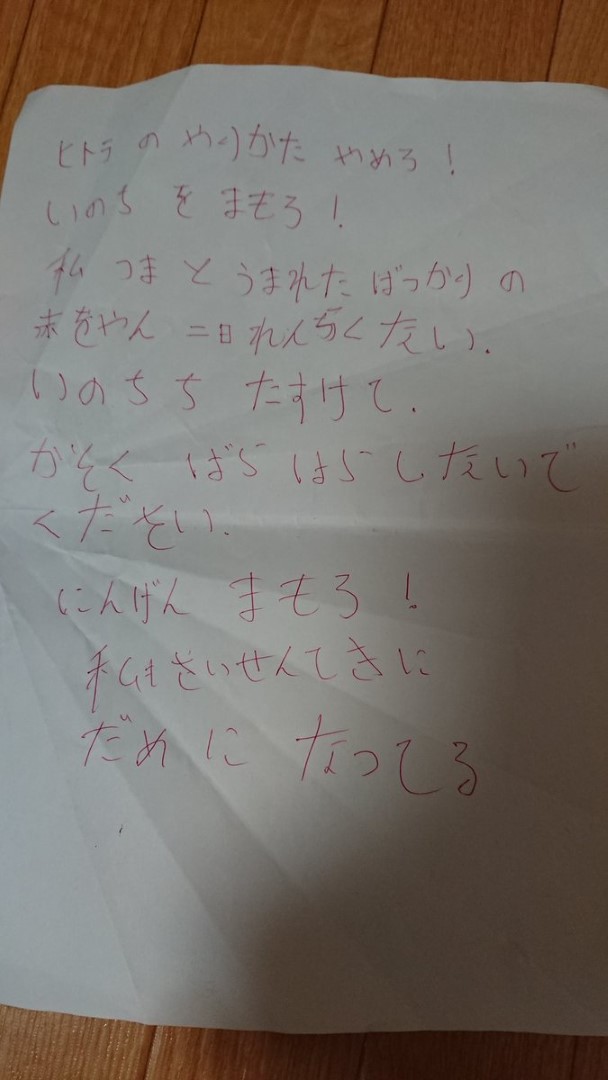 ヒトラのやりかたやめろ!
いのちをまもろ!
私つまとうまれたばっかりの
赤をやん二日れんらくない.
いのちちたすけて.
がぞくばらばらしないで
くだそい.
にんげんまもろ!
私もせいせんてきに
だめになってる